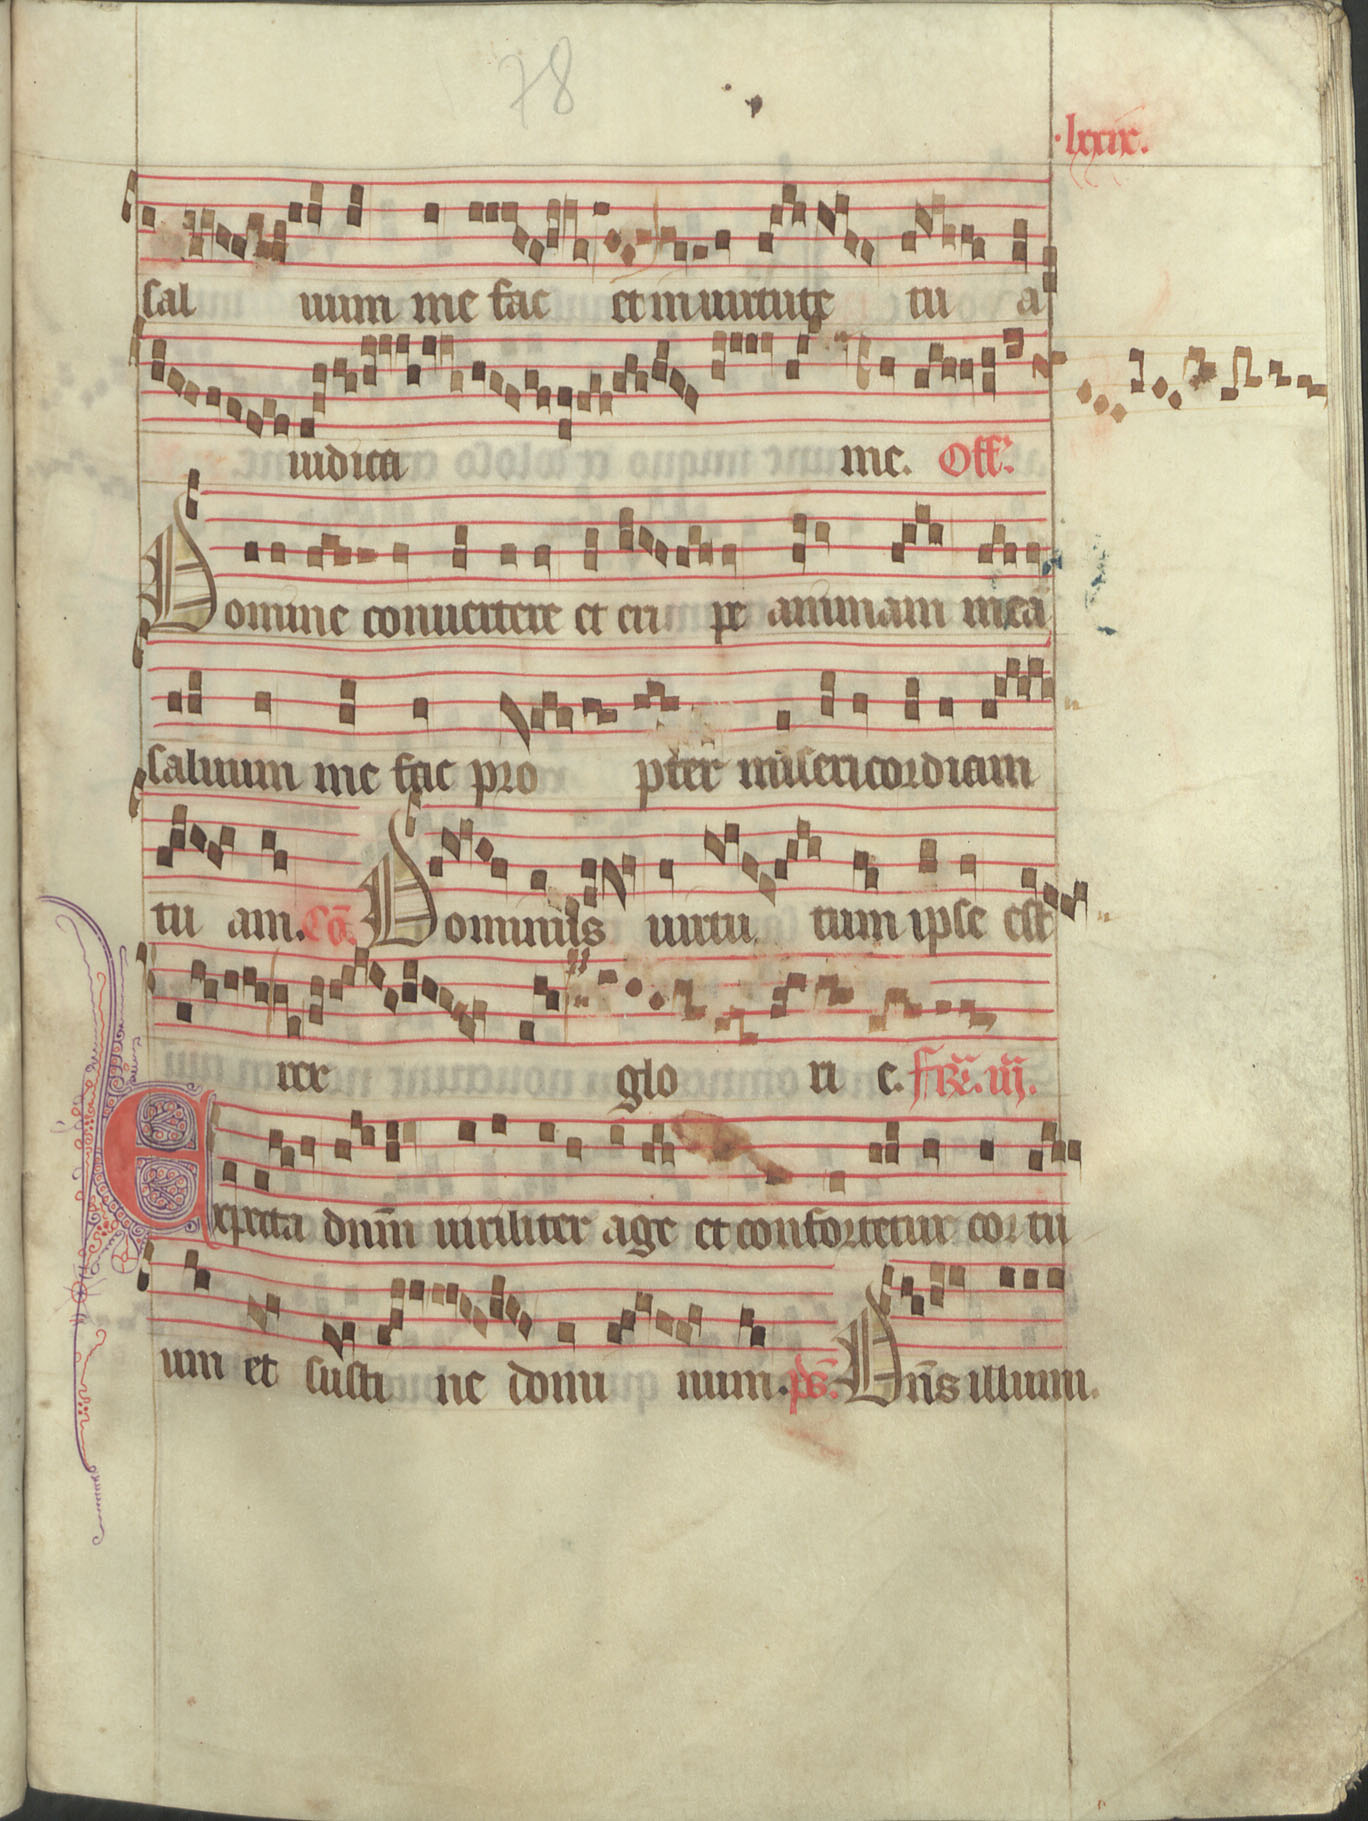 78
·lxxix.
sal uum me fac et in uirtute tu a
iudica me. Off.
Domine conuertere et eri pe animam mea
saluum me fac pro pter misericordiam
tu am. Cō. Dominus uirtu tum ipse est
rex glo ri e. Fr̄e. iij.
Expecta dn̄m uiriliter age et confortetur cor tu
um et susti ne domi num. ps̄. Dn̄s illum.